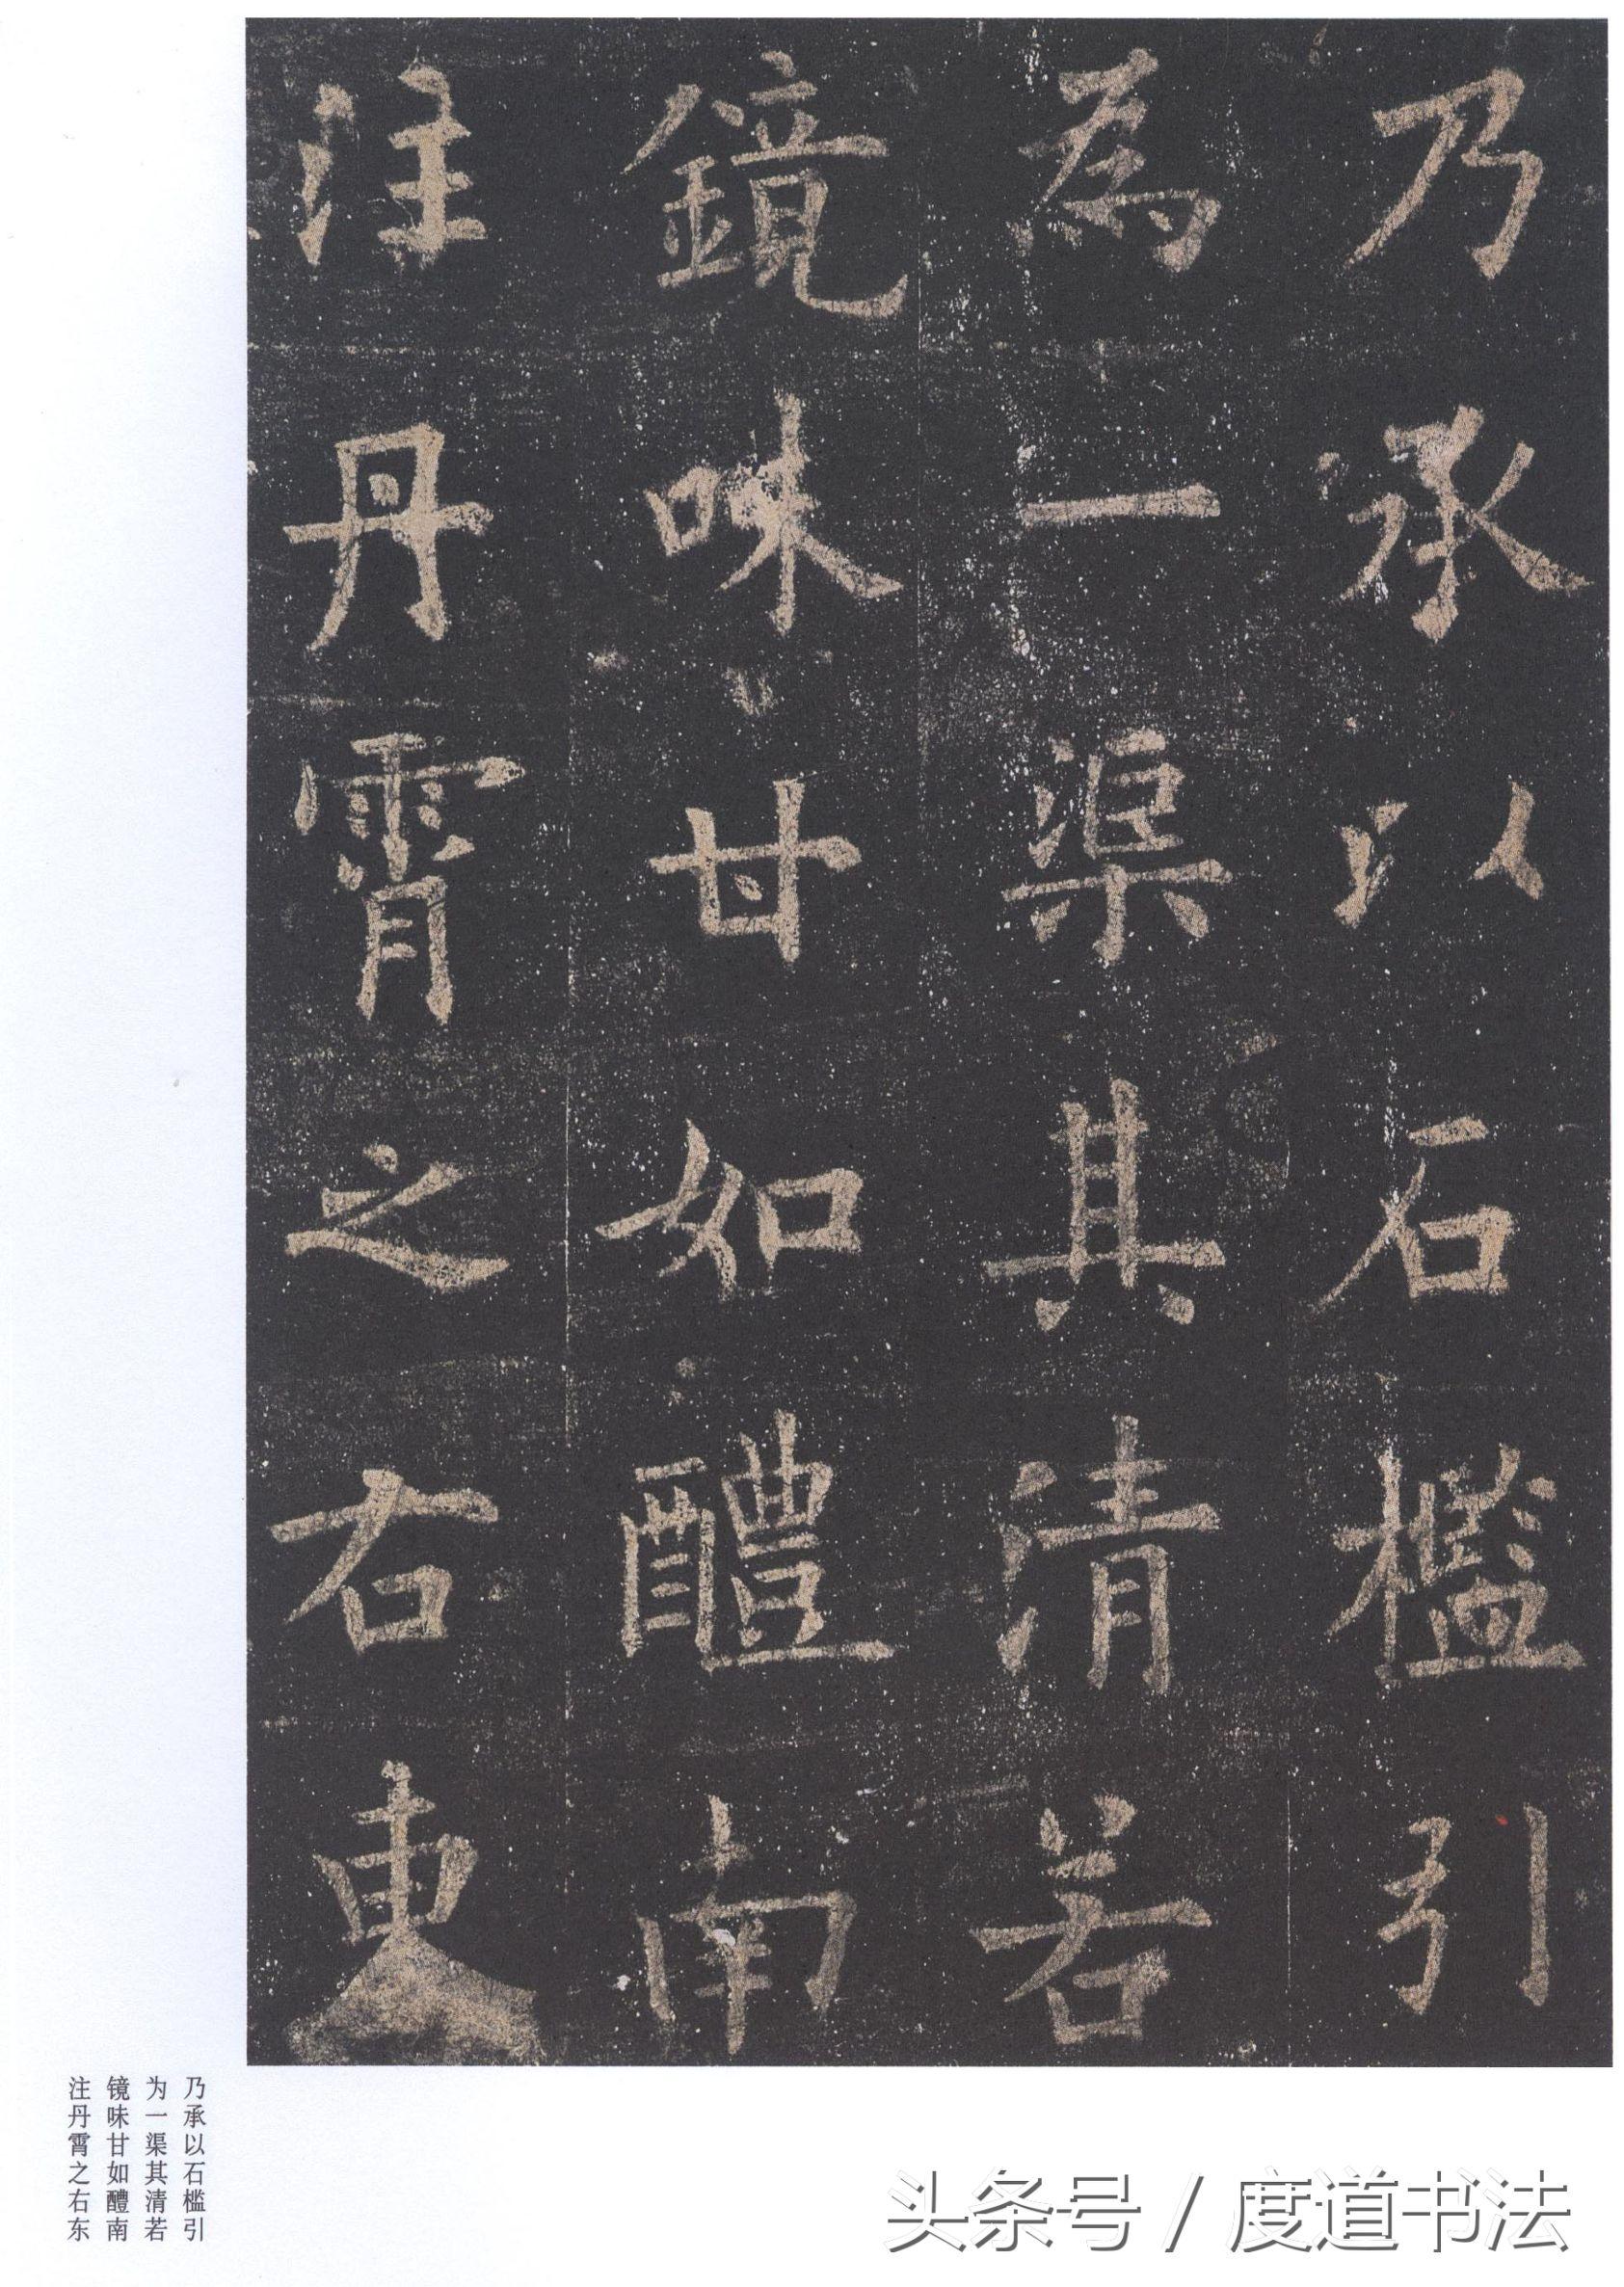 乃承以石檻引
為一渠其清若
鏡味甘如醴南
注丹霄之右東
乃承以石槛引
为一渠其清若
镜味甘如醴南
注丹霄之右东
头条号 / 度道书法